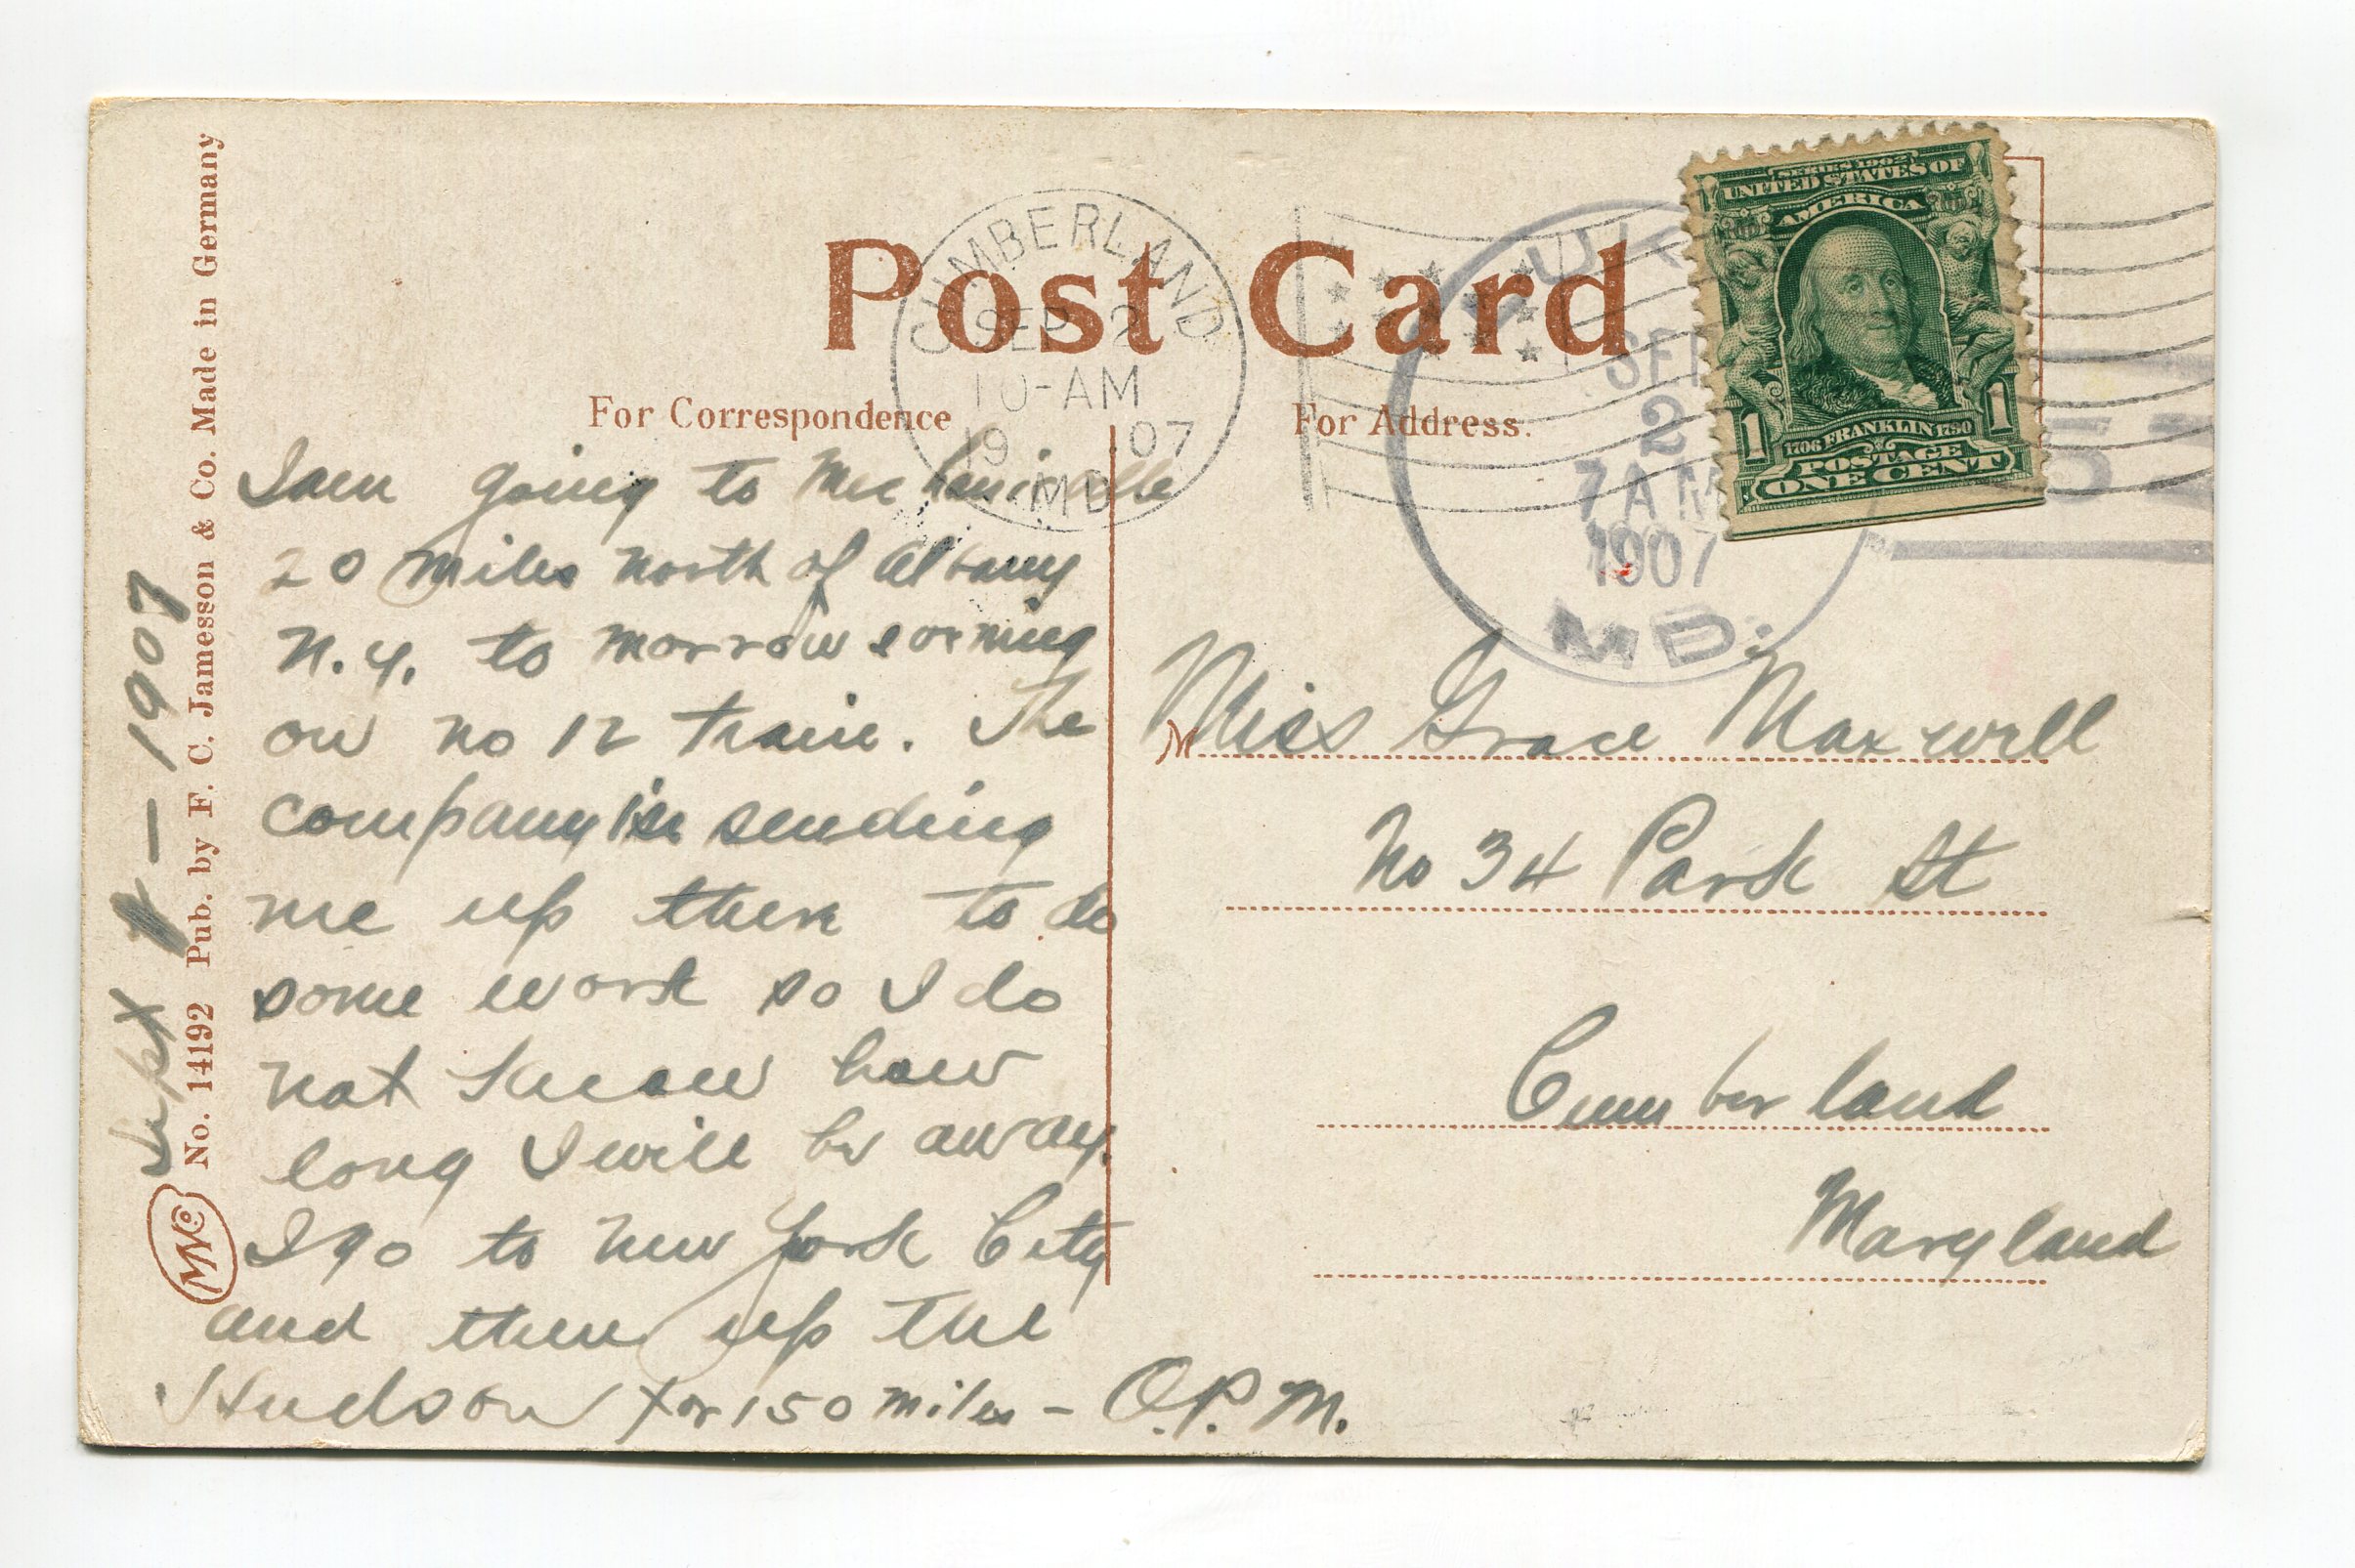 Post Card
For Correspondence
For Address.
CUMBERLAND
SEP 2
10-AM
1907
MD
SEP
2
7 AM
1907
MD.
SERIES 1902
UNITED STATES OF
AMERICA
1 1
1706 FRANKLIN 1790
POSTAGE
ONE CENT
I am going to Mechanicville
20 miles north of Albany
N.Y. to morrow evening
on no 12 train. The
company is sending
me up there to do
some work so I do
not know how
long I will be away.
I go to New York City
and then up the
Hudson for 150 miles - O.P.M.
M
Miss Grace Maxwell
No 34 Park St
Cumberland
Maryland
Sept 1 - 1907
No. 14192 Pub. by F. C. Jamesson & Co. Made in Germany